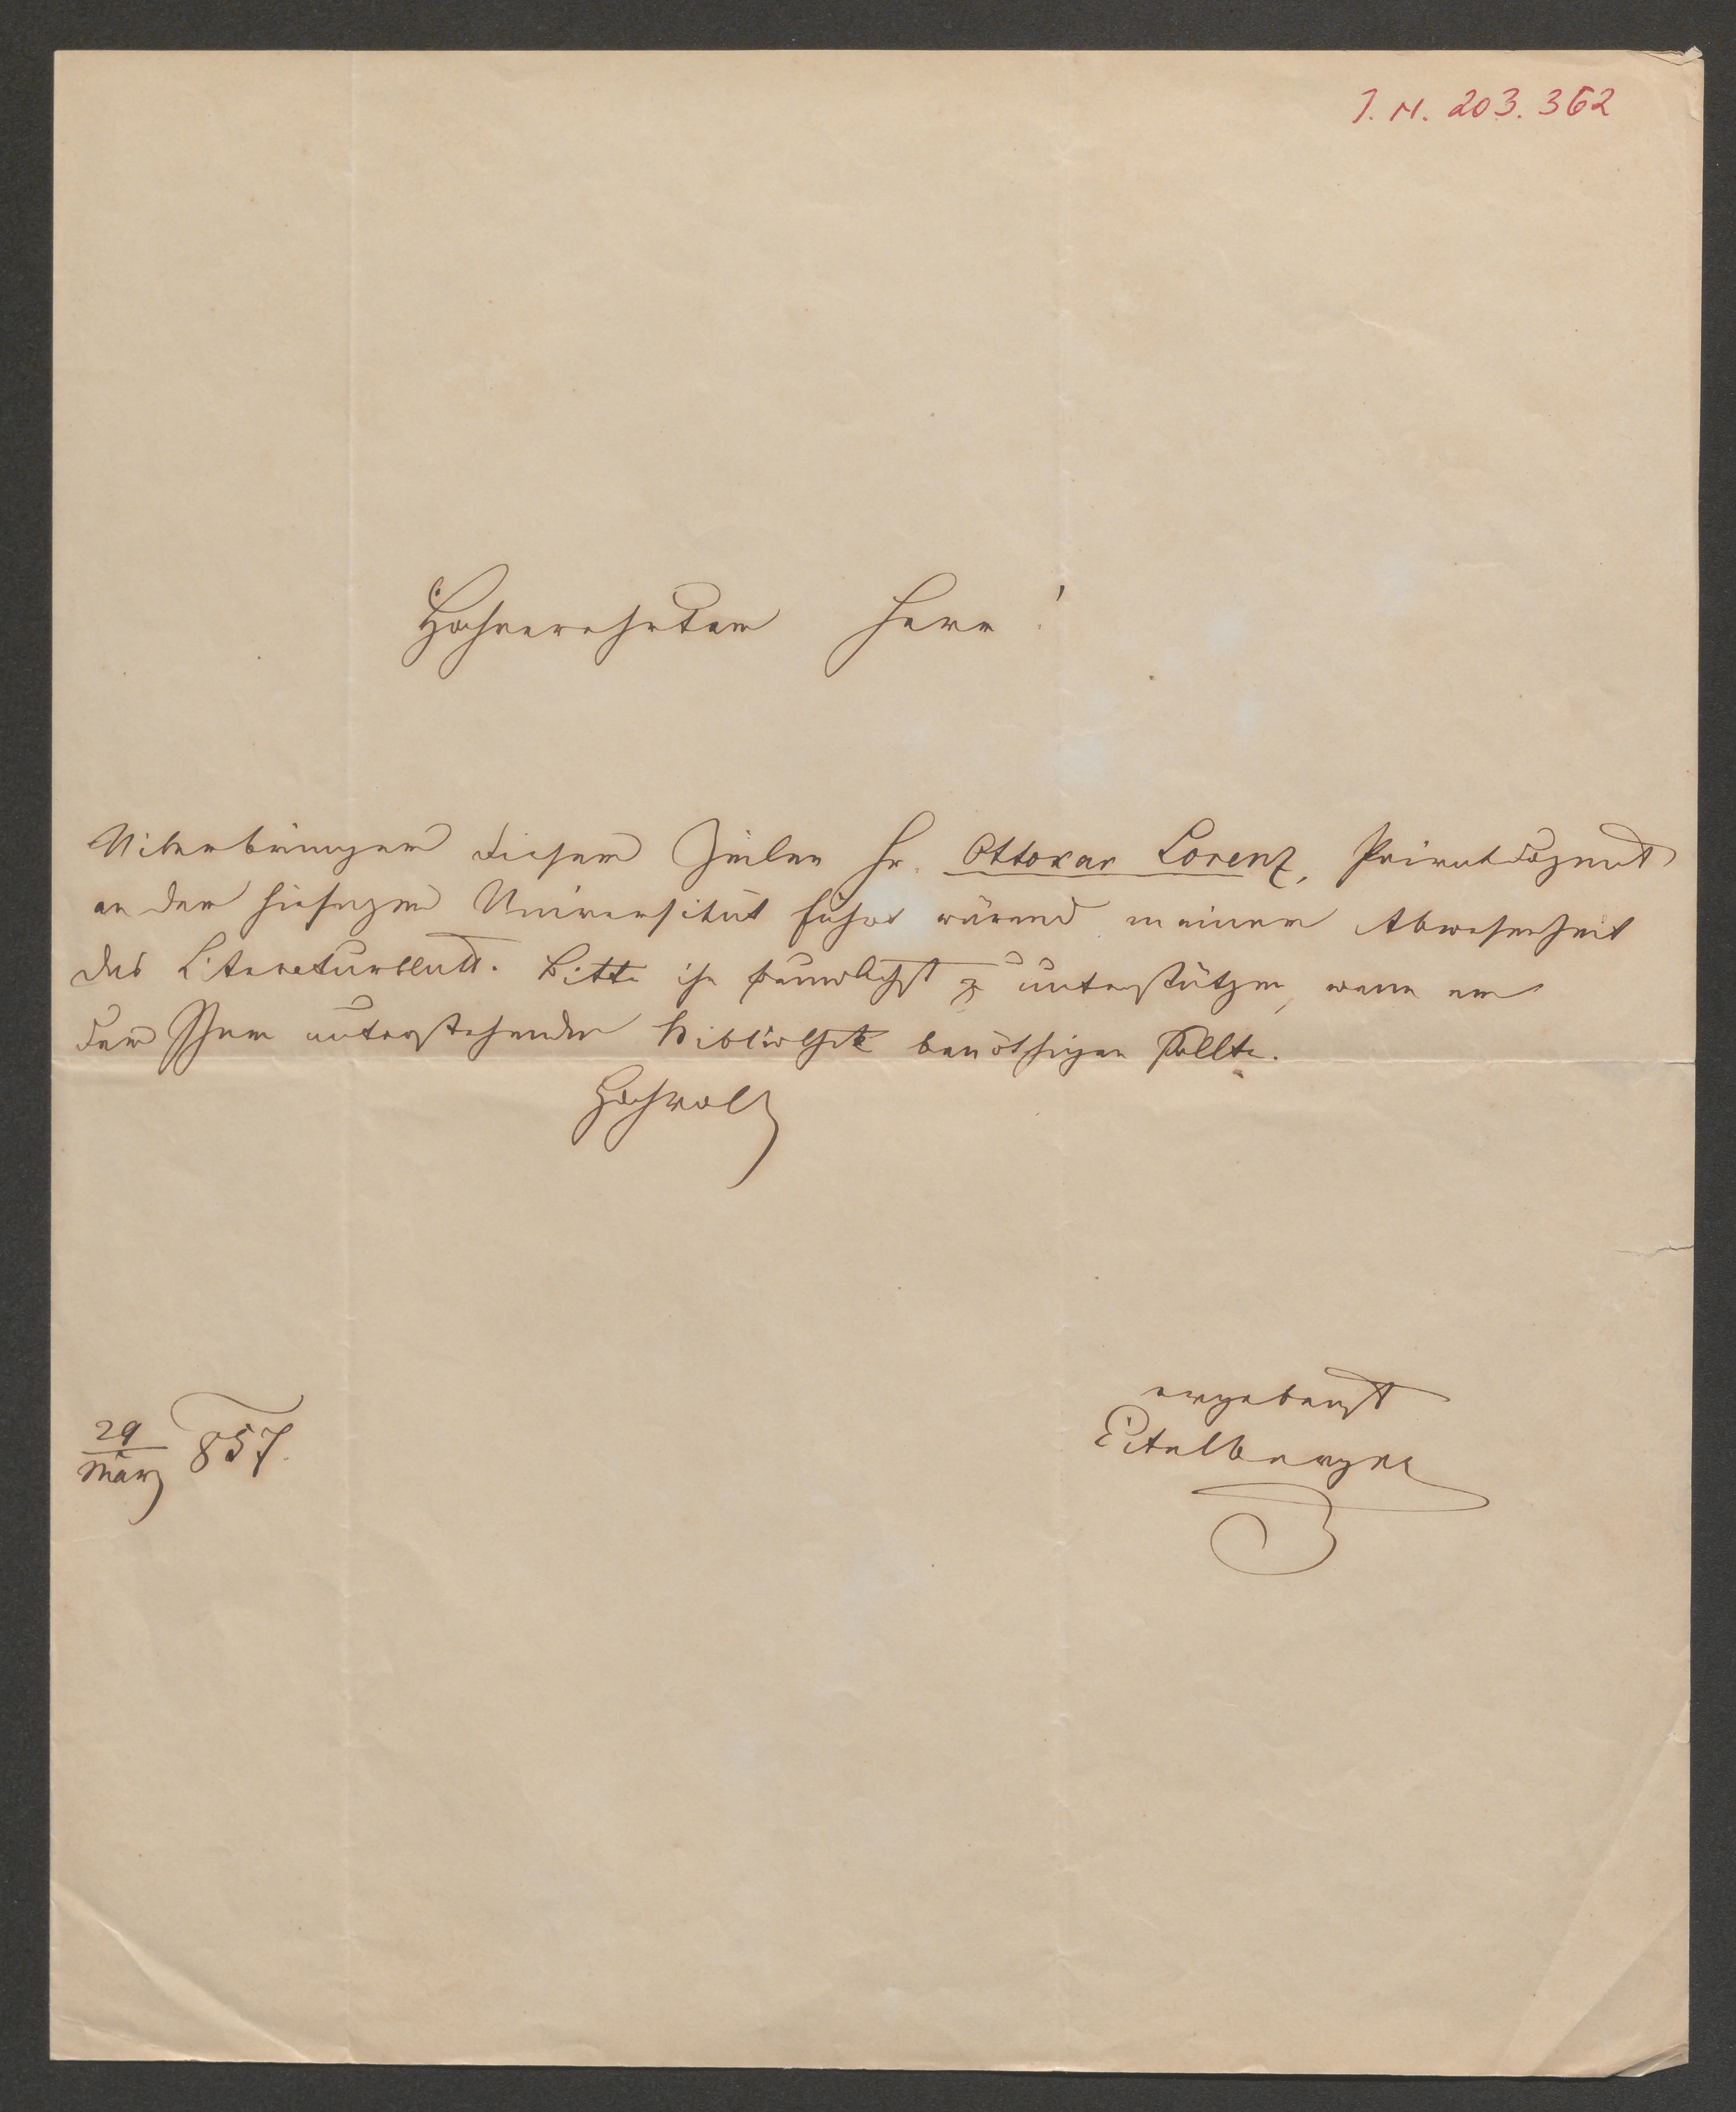 I. N. 203.362
Hochverehrter Herr!
Uiberbringer dieser Zeilen Hr. Ottokar Lorenz, Privatdozent
an der hiesigen Universität führt wärend meiner Abwesenheit
das Literaturblatt. Bitte ihn freundlichst zu unterstützen, wenn er
der Ihnen unterstehenden Bibliothek benöthigen sollte.
Hochvoll
ergebenst
29
März 857.
Eitelberger